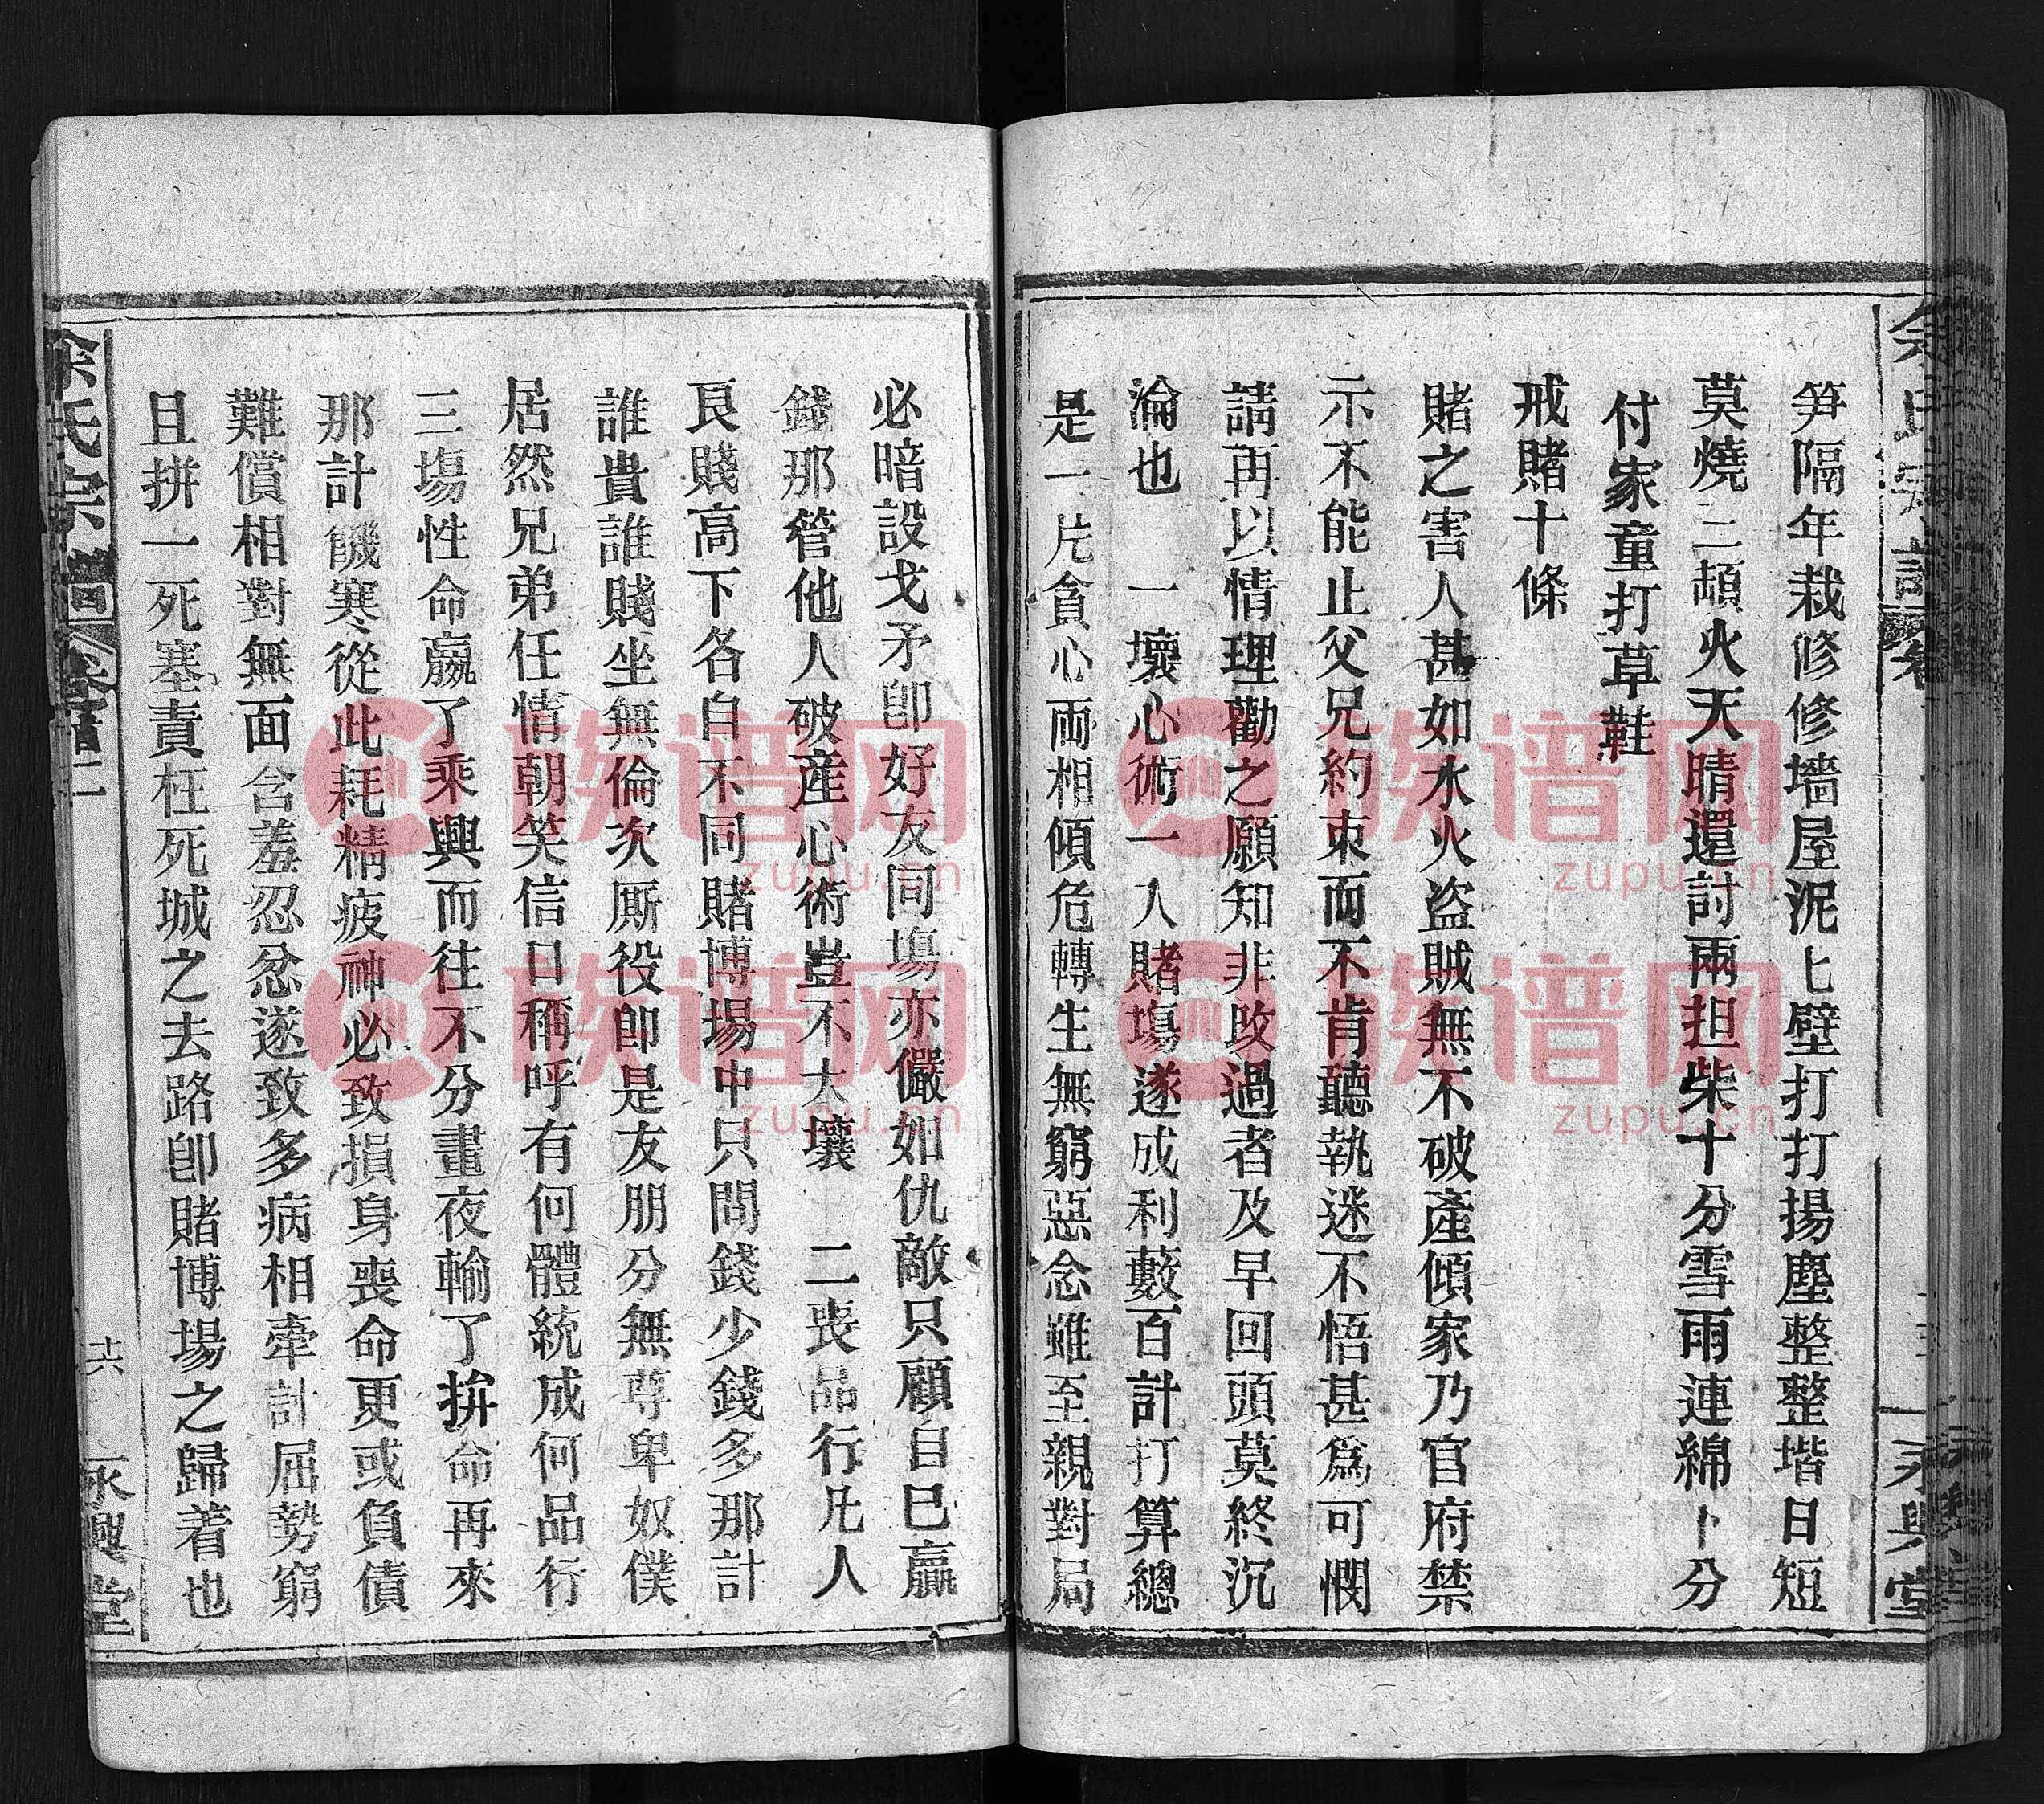 笋隔年栽修修墻屋泥匕壁打打揚塵整整堦日短
莫燒三頡火天晴還討兩担柴十分雪雨連綿卜分
付家童打草鞋
戒賭十條
賭之害人甚如水火盗賊無不破產傾家乃官府禁
示不能止父兄約束而不肯聽執迷不悟甚為可憫
請再以情理勸之願知非改過者及早回頭莫終沉
淪也　一壞心術一入賭塲遂成利藪百計打算總
是一片貪心両相傾危轉生無窮惡念雖至親對局
必暗設戈矛卽好友同塲亦儼如仇敵只顧自已贏
錢那管他人破產心術豈不大壞　二喪品行凡人
良賤高下各自不同賭博場中只問錢少錢多那計
誰貴誰賤坐無倫次厮役卽是友朋分無尊卑奴僕
居然兄弟任情朝笑信口稱呼有何體統成何品行
三塲性命嬴了乘興而往不分晝夜輸了拚命再來
那計饑寒從此耗精疲神必致損身喪命更或負債
難償相對無面含羞忍忿遂致多病相牽計屈勢窮
且拼一死塞責枉死城之去路卽賭博場之歸着也
余氏宗譜
卷首二
十六
永興堂
永興堂
族谱网
zupu.cn
族谱网
zupu.cn
族谱网
zupu.cn
族谱网
zupu.cn